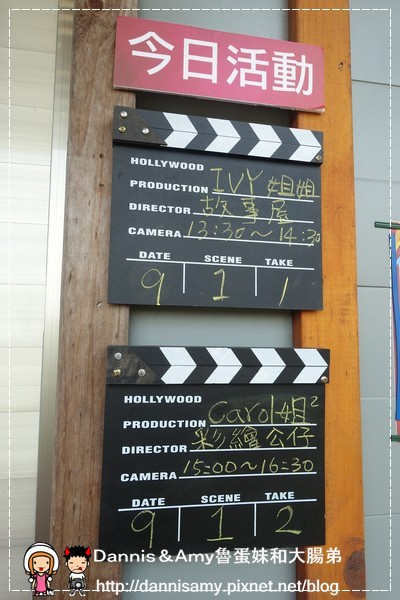 今日活動
HOLLYWOOD
PRODUCTION IVY 姐姐
DIRECTOR 故事屋
CAMERA 13:30～14:30
DATE SCENE TAKE
9 1 1
HOLLYWOOD
PRODUCTION Carol姐²
DIRECTOR 彩繪公仔
CAMERA 15:00～16:30
DATE SCENE TAKE
9 1 2
Dannis＆Amy魯蛋妹和大腸弟
http://dannisamy.pixnet.net/blog